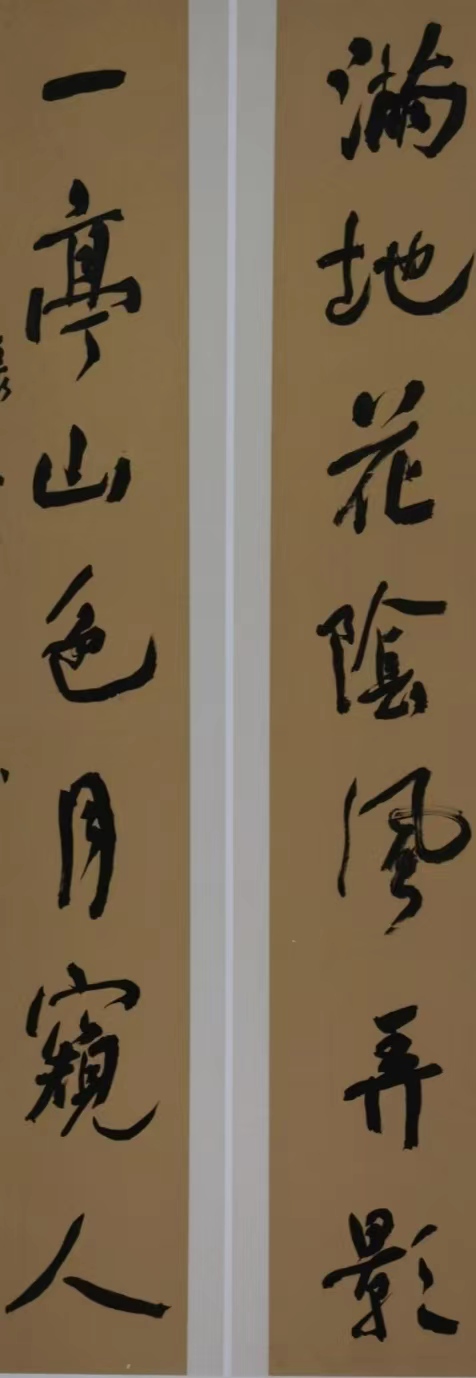 滿地花陰風弄影
一亭山色月窺人